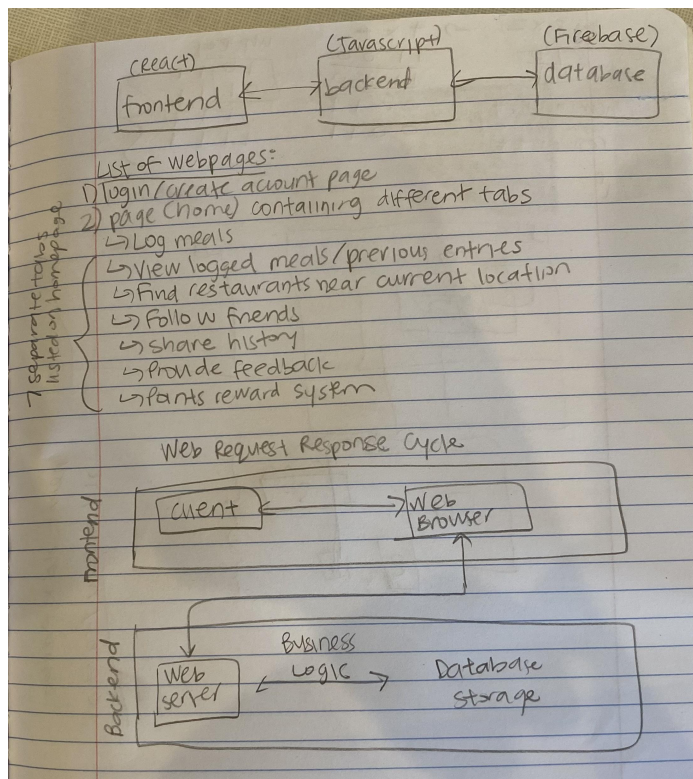 (React)
frontend
(Javascript)
backend
(Firebase)
database
List of webpages:
1) login/create account page
2) page (home) containing different tabs
↳ Log meals
↳ View logged meals/previous entries
↳ Find restaurants near current location
↳ Follow friends
↳ Share history
↳ Provide feedback
↳ Points reward system
7 separate tabs
listed on homepage
Web Request Response Cycle
Frontend
Client
Web
Browser
Backend
Web
server
Business
Logic
Database
Storage